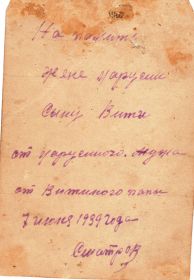 На память
жене Марусии
сыну Вити
от Марусиного мужа
от Витиного папы
7 июня 1939 года